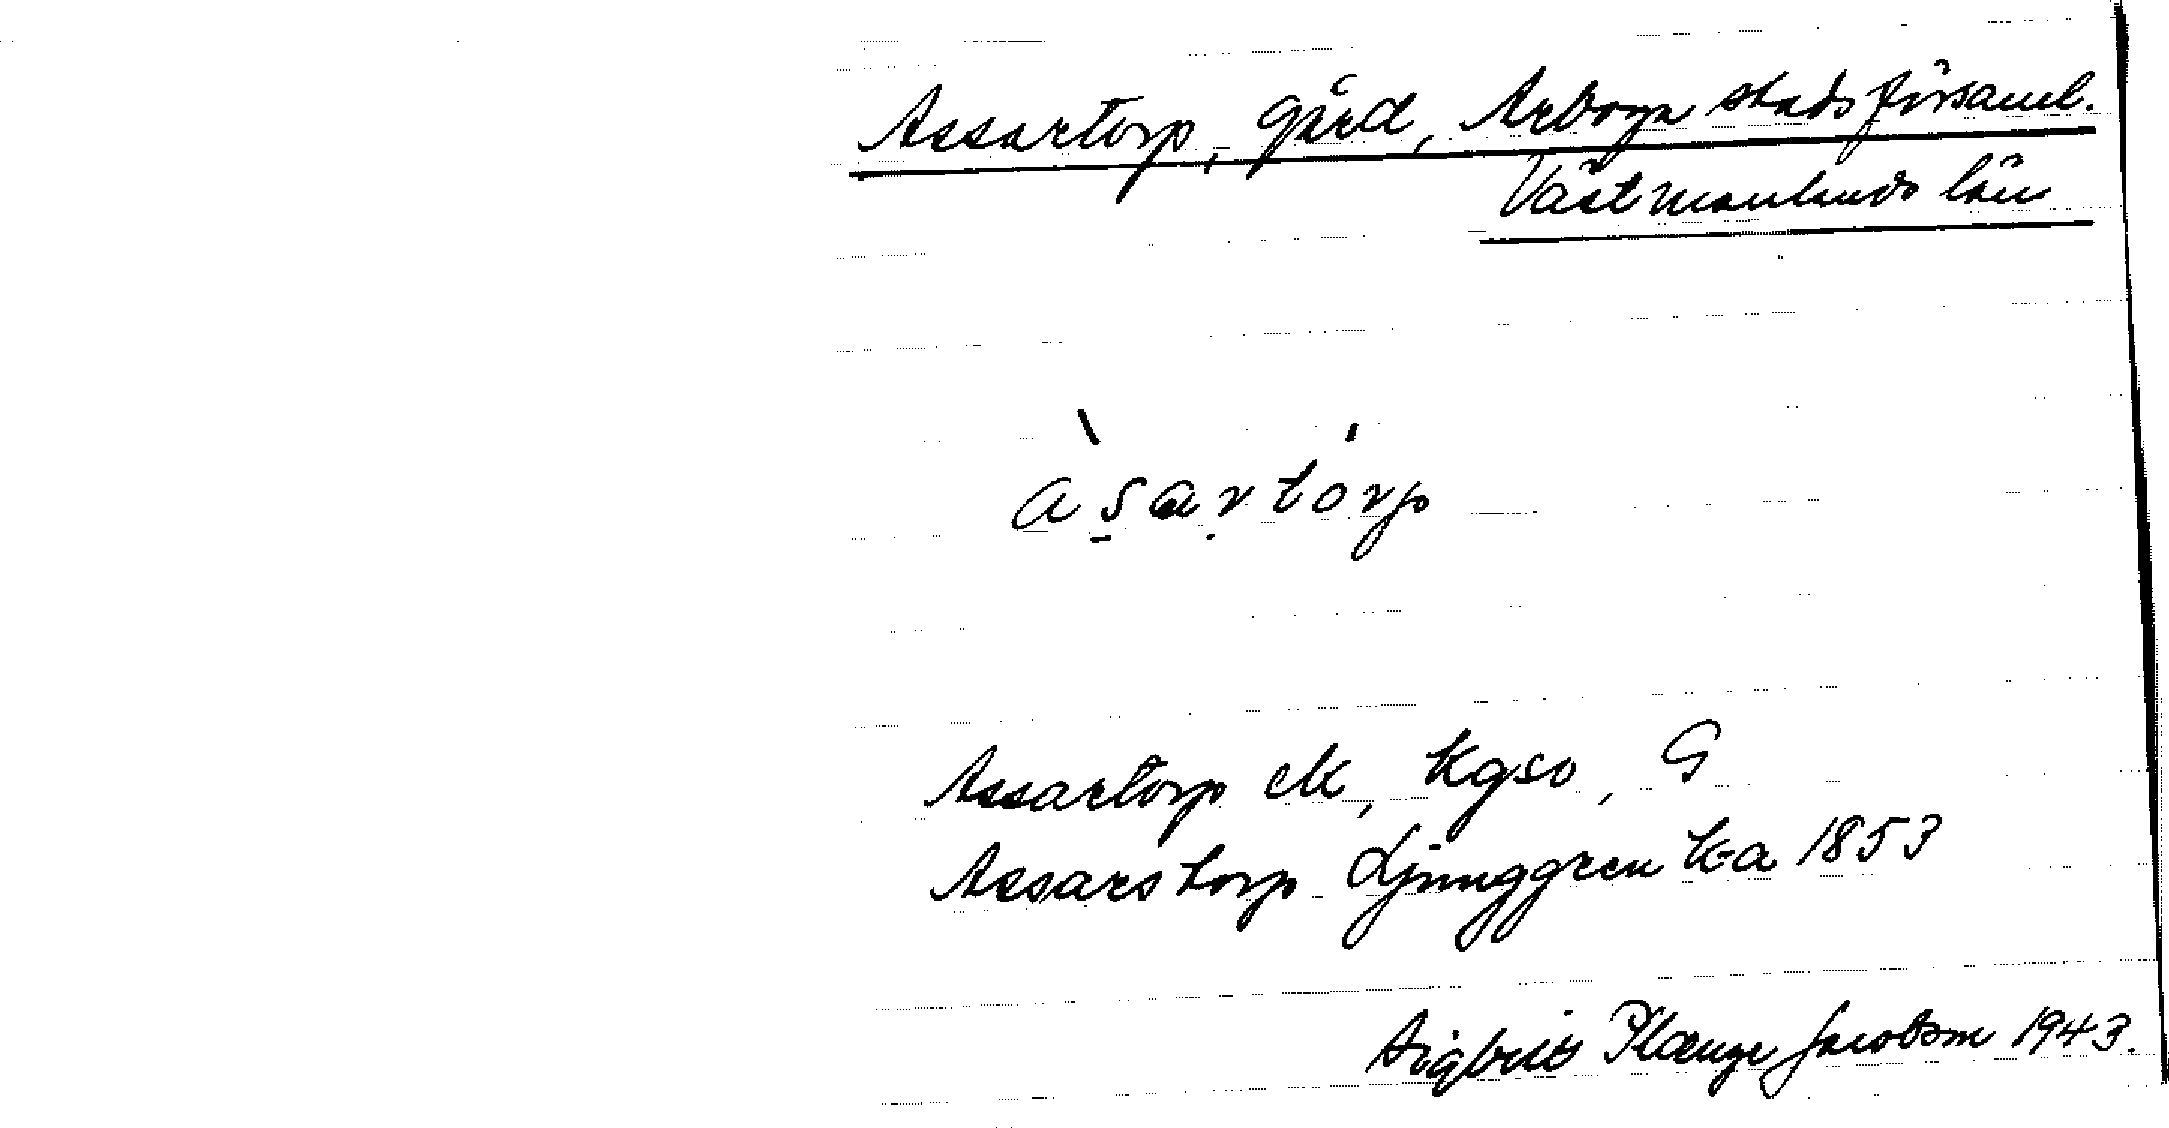 Assartorp, gård, Arboga stadsförsaml.
Västmanlands län
àsartórp
Assartorp eK, Kgso, G
Assarstorp Ljunggren Ka 1853
Sigbrit Plænge Jacobson 1943.